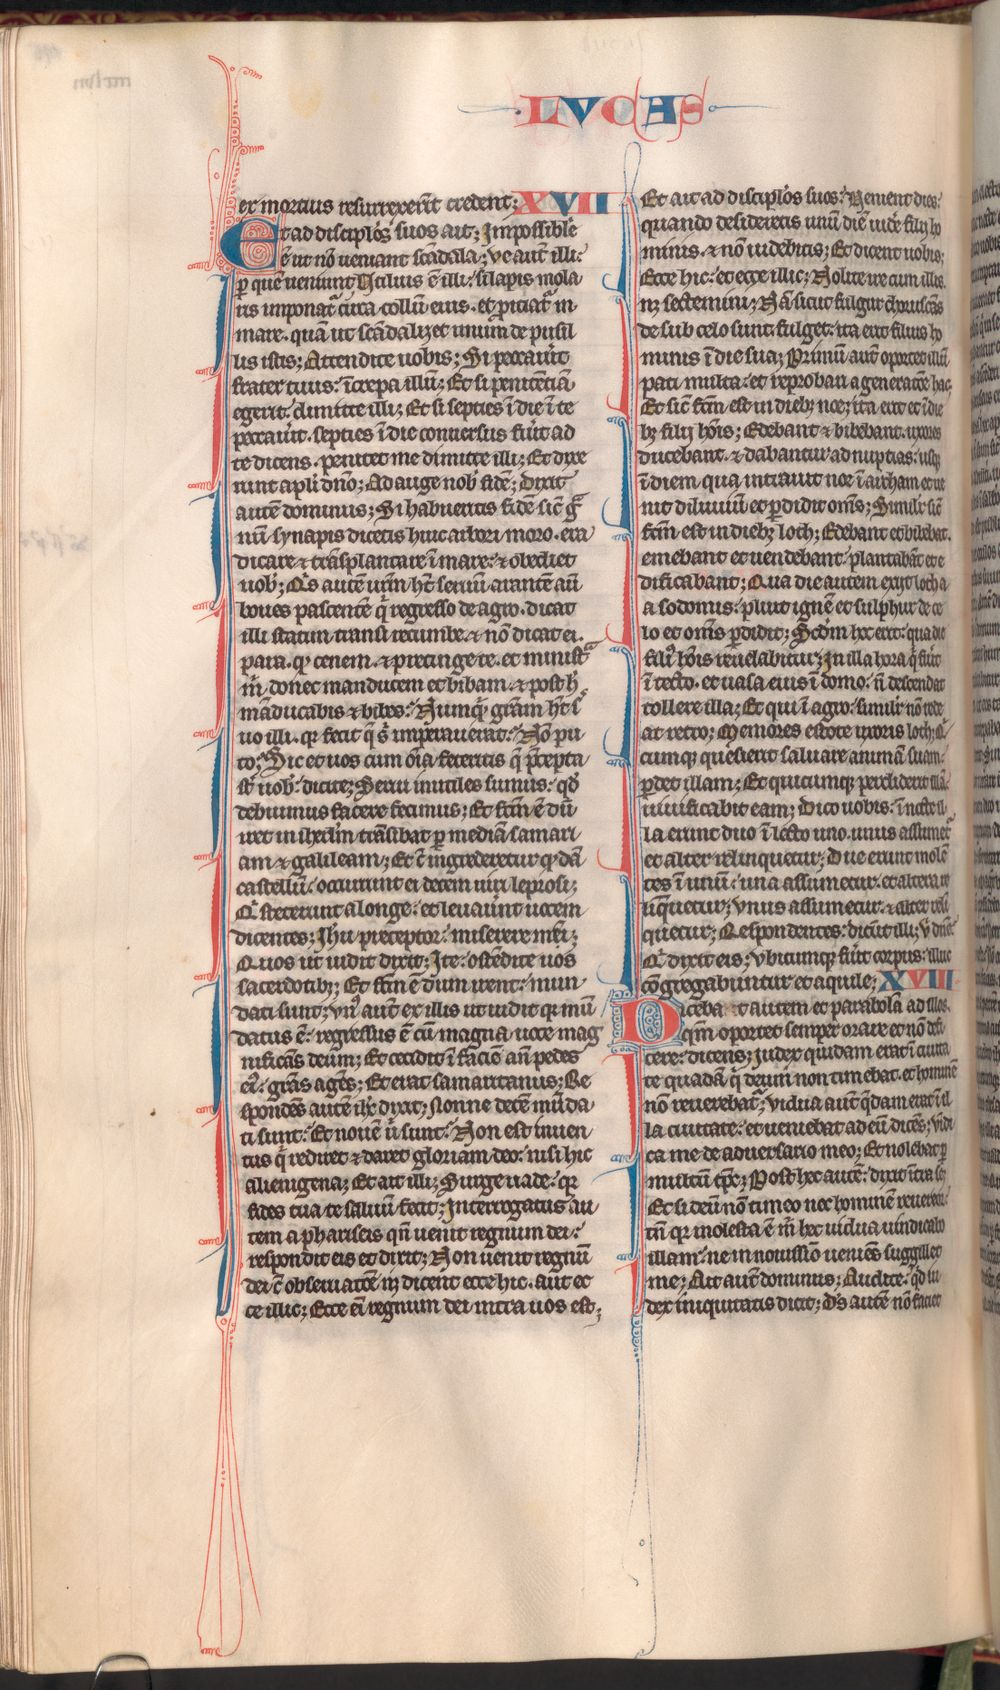 LVCAS
ex mortuis resurrexerīt credent; XVII
Et ad discip̄los suos ait; Impossibile
ē ut nō ueniant scādala; ve autē illi:
ꝑ quē ueniunt Vtilius ē illi: si lapis mola
ris imponat᷑ circa collū eius. et ꝓiciat᷑ in
mare. quā ut scādalizet unum de pusil
lis istis; Attendite uobis; Si peccaūit
frater tuus: īcrepa illū; Et si penitētiā
egerit: dimitte illi; Et si septies ī die ī te
peccaūit. septies ī die conuersus fūit ad
te dicens. penitet me dimitte illi; Et dixe
runt apl̄i dn̄o; Ad auge nob̄ fidē; Dixit
autē dominus; Si habueritis fidē sic̄ gͣ
nū synapis dicetis huic arbori moro. era
dicare ⁊ trāsplantare ī mare: ⁊ obediet
uob̄; Qͥs autē ur̄m hꝫ̄ seruū arantē aū
boues pascentē qͥ regresso de agro. dicat
illi statim transi recumbe. ⁊ nō dicat ei.
para. qͩ cenem. ⁊ precinge te. et ministͣ
m̄ donec manducem et bibam. ⁊ post hͨ
māducabis ⁊ bibes: Numquͥd gr̄am hꝫ̄ ẜ
uo illi. qꝛ fecit q̄ ẜ imperauerat: Nō pu
to: Sic et uos cum oīa feceritis q̄ p̄cepta
sꝫ̄ uob̄: dicite; Serui inutiles sumus: qd̄
debuimus facere fecimus; Et fcm̄ ē dū
iret in ihrl̄m trāsibat ꝑ mediā samari
am ⁊ galileam; Et c̄ ingrederetur qͦdā
castellū: occurrunt ei decem uiri leprosi;
Qͥ steterunt a longe: et leuaūt uocem
dicentes: Ihu preceptor: miserere mr̄i;
Quos ut uidit dixit; Ite: ostēdite uos
sacerdotibꝫ; Et fcm̄ ē dum irent: mun
dati sunt; vn̄ᵒ autē ex illis ut uidit qꝛ mū
datus ē: regressus ē cū magna uoce mag
nificās deum; Et cecidit ī faciē an̄ pedes
eiᵒ: grās agēs; Et erat samaritanus; Re
spondēs autē ihc̄ dixit; Nonne decē mūda
ti sunt: Et nouē ū sunt: Non est inuen
tus qͥ rediret ⁊ daret gloriam deo: nisi hic
alienigena; Et ait illi; Surge uade: qꝛ
fides tua te saluū fecit; Interrogatus au
tem a phariseis qn̄ uenit regnum dei:
respondit eis et dixit; Non uenit regnū
dei c̄ obseruatōe nꝫ dicent ecce hic. aut ec
ce illic; Ecce eī regnum dei intra uos est;
Et ait ad discip̄los suos: Venient dies:
quando desideretis unū diē uidē filij ho
minis. ⁊ nō uidebitis; Et dicent uobis;
Ecce hic: et ecce illic; Nolite ire cum illis.
nꝫ sectemini; Nā sicut fulgur choruscās
de sub celo sunt. fulget: ita erit filius ho
minis ī die sua; Primū autē oportet illū
pati multa: et reprobari a generatōe hac.
Et sic̄ fcm̄ est in diebꝫ noe; ita erit et ī die
bꝫ filij hōis; Edebant ⁊ bibebant. uxores
ducebant. ⁊ dabantur ad nuptias: usqꝫ
ī diem qua intrauit noe ī archam et ue
nit diluuiū et ꝑdidit om̄s; Similiꝛ sic̄
fcm̄ est in diebꝫ loth; Edebant et bibebāt.
emebant et uendebant: plantabāt et e
dificabant; Qua die autem exijt loth a
a sodomis: pluit ignē et sulphur de ce
lo et om̄s ꝑdidit; Scdm̄ hec erit: qua die
filiᵒ hōis reuelabitur; In illa hora qͥ fūit
ī tecto. et uasa eius ī domo: n̄ descendat
tollere illa; Et qui ī agro: similiꝛ nō rede
at retro; Memores estote uxoris loth; Qͥ
cumqꝫ quesierit saluare animā suam:
ꝑdet illam; Et quicumqꝫ perdiderit illā:
uiuificabit eam; Dico uobis: ī nocte il
la erunt duo ī lecto uno. unus assumet᷑
et alter relinquetur; Due erunt molē
tes ī unū: una assumetur. et altera re
linquetur; vnus assumetur. ⁊ alter reli
quetur; Respondentes: dicūt illi; v̄ dn̄e:
Qͥ dixit eis; Vbicumqꝫ fūit corpus: illuc
cōgregabuntur et aquile; XVIII
Diceba t autem et parabolā ad illos.
qm̄ oportet semper orare et nō defi
cere: dicens; Judex quidam erat ī ciuita
te quadā qͥ deum non timebat. et hominē
nō reuerebat᷑; Vidua autē qͣdam erat ī il
la ciuitate: et ueniebat ad eū dicēs; Vīdi
ca me de aduersario meo; Et nolebat ꝑ
multū tp̄c; Post hec autē: dixit ītra se;
Et si deū nō timeo nec hominē reuereor:
tn̄ qꝛ molesta ē m̄ hec uidua uindicabo
illam: ne in nouissīo ueniēs suggillet
me; Ait autē dominus; Audite: qd̄ iu
dex iniquitatis dicit; Ds̄ autē nō faciet